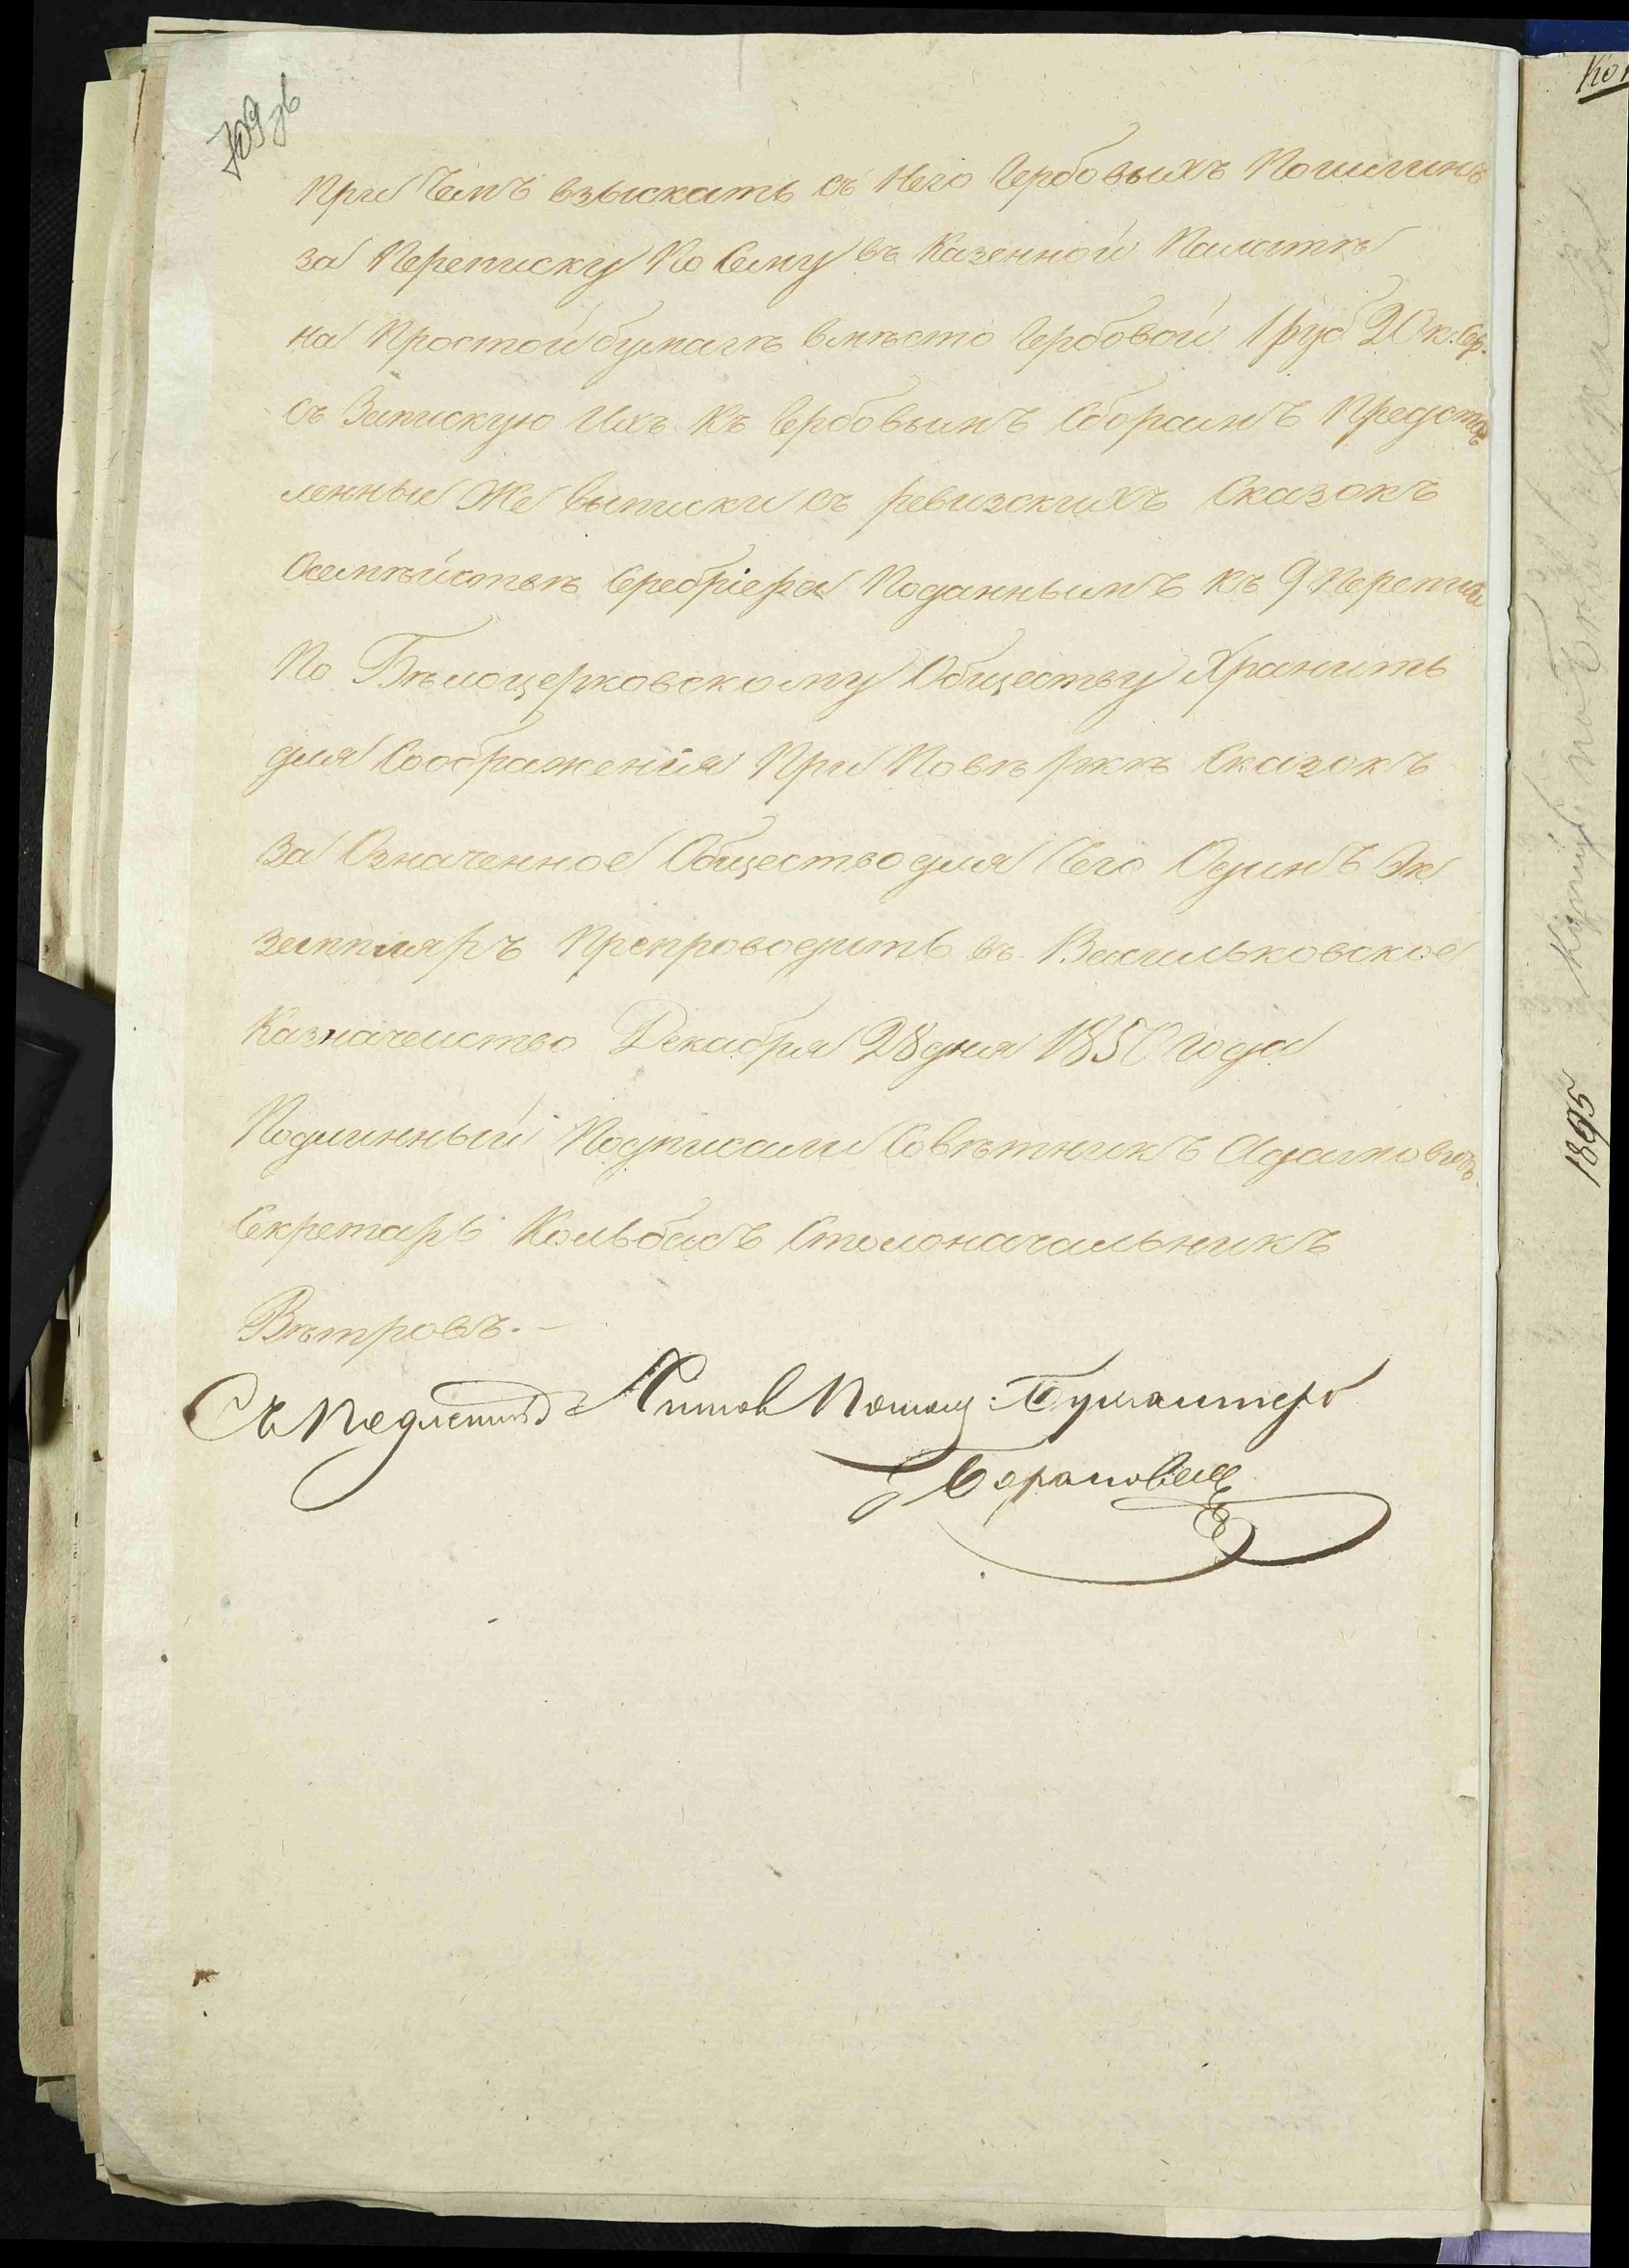 709 зв
при Чемъ взыскать съ Него Гербовыхъ Пошлинъ
за Переписку По Сему въ Казенной Палатѣ
на Простой бумагѣ вмѣсто Гербовой 1 руб 20 к. Сер.
съ Запискую Ихъ Къ Гербовымъ Сборамъ Представ
ленные Же Выписки съ ревизскихъ Сказокъ
Осемѣйствѣ Сребріера Поданнымъ къ 9 Переписи
По Бѣлоцерковскому Обществу Хранить
для Соображенія При Повѣркѣ Сказокъ
За Означенное Общество для Чего Одинъ Эк
земпляръ Препроводить въ Васильковское
Казначейство Декабря 28 дня 1850 года
Подлинный Подписали Совѣтникъ Адамовичъ
Секретарь Кольбасъ Столоначальникъ
Вѣтровъ. –
Съ Подлеинымъ Помощ: Бухгалтера
Барановский
Коп
1895